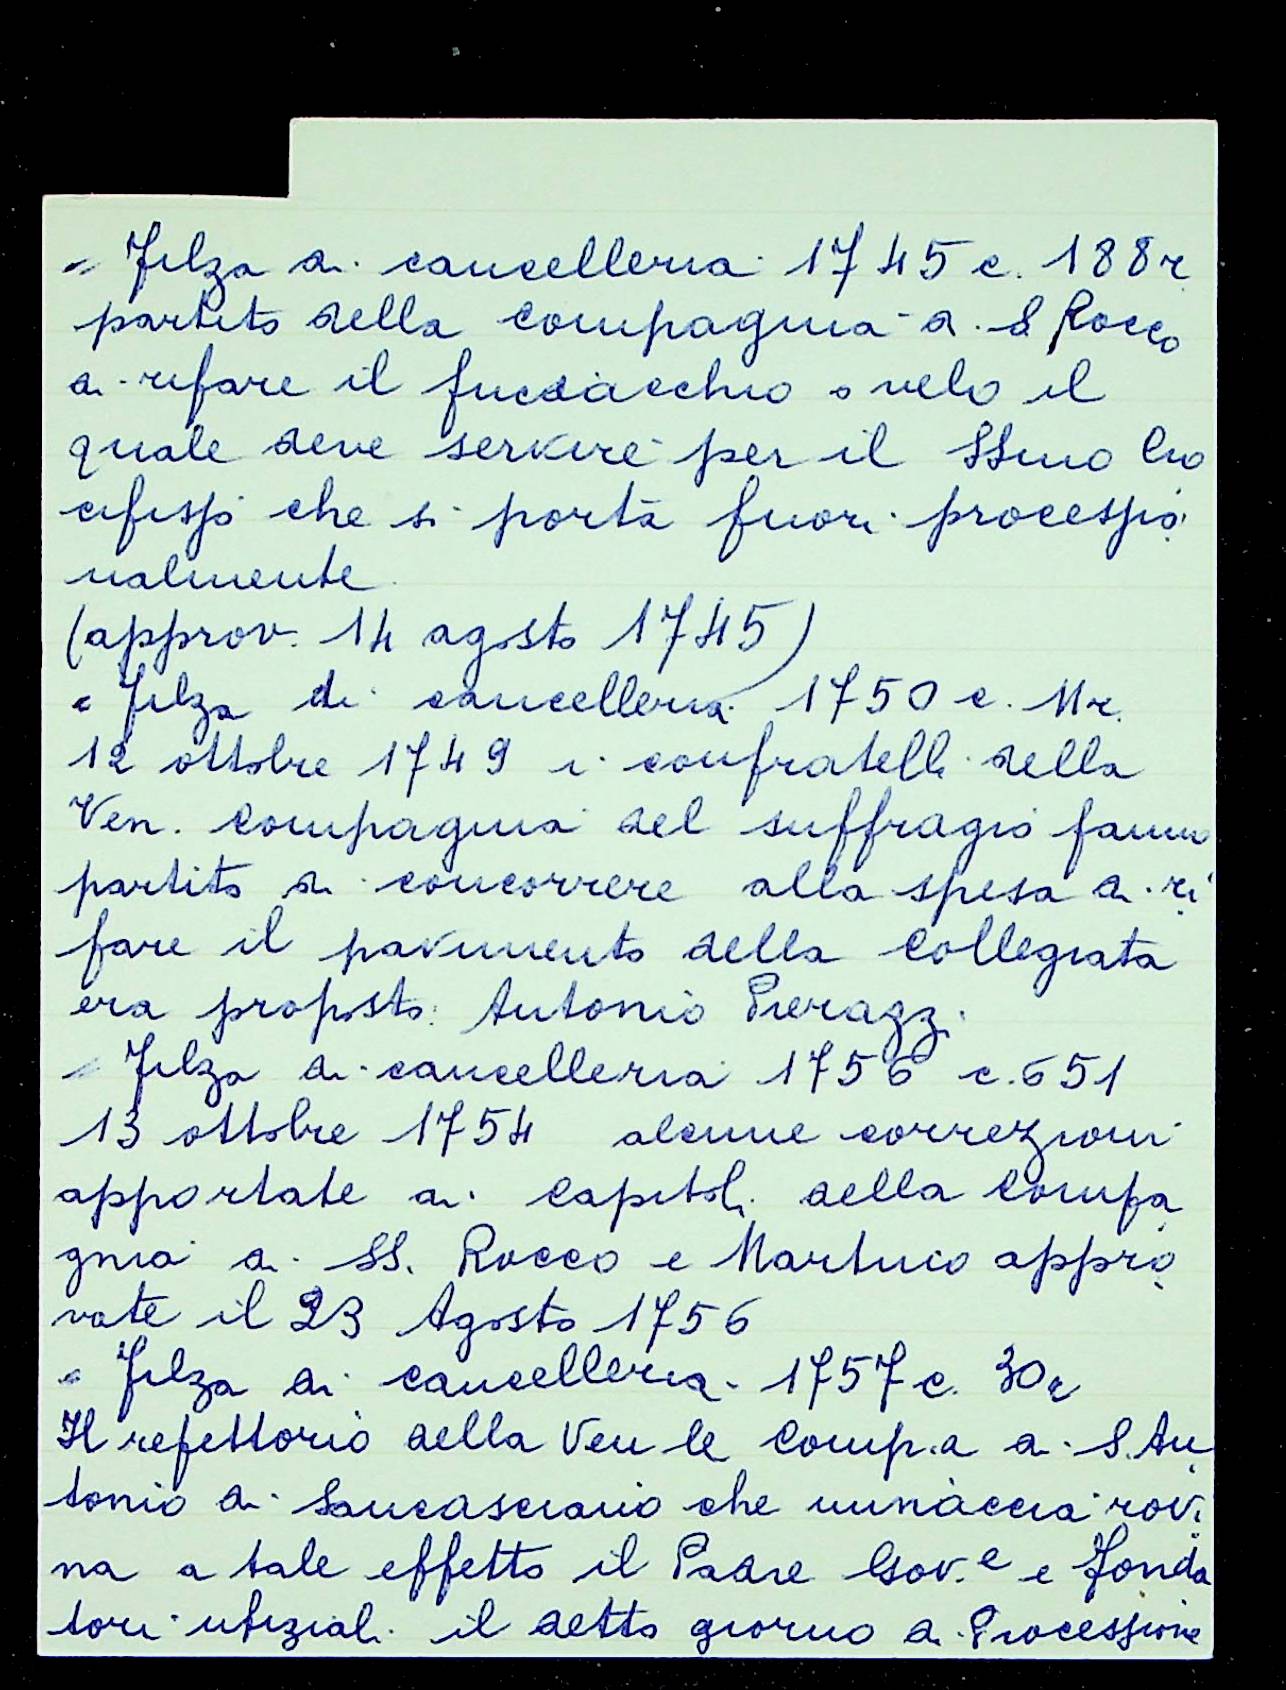 = Filza di cancelleria 1745 c. 188r
partito della compagnia di S Rocco
di rifare il fuciacchio o velo il
quale deve servire per il SSmo Cro
cifisso che si porta fuori processio
nalmente
(approv. 14 agosto 1745)
= Filza di cancelleria 1750 c. 11r.
12 ottobre 1749 i confratelli della
Ven. Compagnia del suffragio fanno
partito di concorrere alla spesa di ri
fare il pavimento della Collegiata
era proposto: Antonio Pierazzi
= Filza di cancelleria 1756 c. 651
13 ottobre 1754 alcune correzioni
apportate ai capitoli della Compa
gnia di SS. Rocco e Martino appro
vate il 23 Agosto 1756
= Filza di cancelleria 1757 c. 30r
Il refettorio della Ven le Comp.a di S. An
tonio di Sancasciano che minaccia rovi
na a tale effetto il Padre Gov.e e Fonda
tori ufiziali il detto giorno di Processione